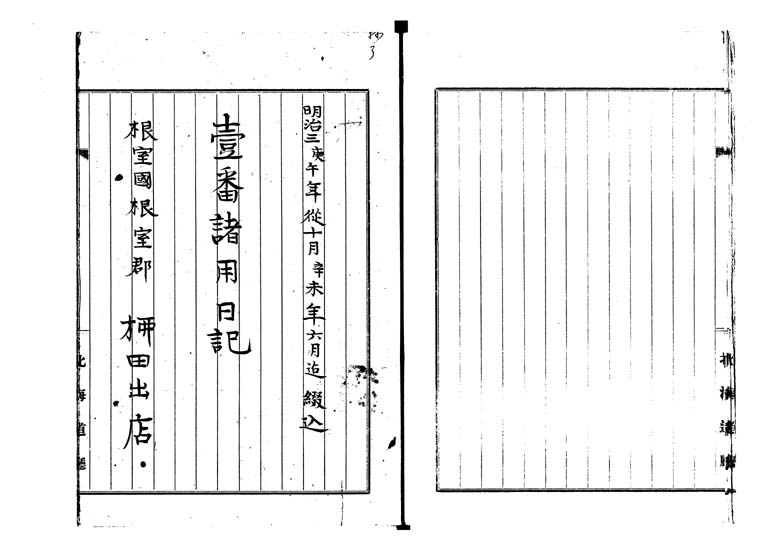 明治三庚午年從十月辛未年六月迠綴込
壹番諸用日記
根室國根室郡 柹田出店
北海道廳
北海道廳